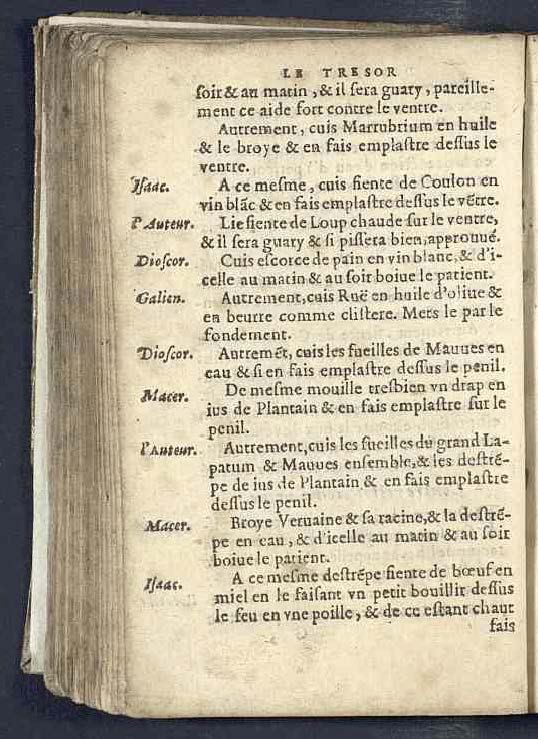 LE TRESOR
ſoir & au matin, & il ſera guary, pareille-
ment ce aide fort contre le ventre.
Autrement, cuis Marrubrium en huile
& le broye & en fais emplaſtre deſſus le
ventre.
Iſaac. A ce meſme, cuis fiente de Coulon en
vin blāc & en fais emplaſtre deſſus le vētre.
l'Auteur. Lie fiente de Loup chaude ſur le ventre,
& il ſera guary & ſi piſſera bien, approuué.
Dioſcor. Cuis eſcorce de pain en vin blanc, & d'i-
celle au matin & au ſoir boiue le patient.
Galien. Autrement, cuis Ruë en huile d'oliue &
en beurre comme cliſtere. Mets le par le
fondement.
Dioſcor. Autremēt, cuis les fueilles de Mauues en
eau & ſi en fais emplaſtre deſſus le penil.
Macer. De meſme mouille tresbien vn drap en
ius de Plantain & en fais emplaſtre ſur le
penil.
l'Auteur. Autrement, cuis les fueilles du grand La-
patum & Mauues enſemble, & les deſtrē-
pe de ius de Plantain & en fais emplaſtre
deſſus le penil.
Macer. Broye Veruaine & ſa racine, & la deſtrē-
pe en eau, & d'icelle au matin & au ſoir
boiue le patient.
Iſaac. A ce meſme deſtrēpe fiente de bœuf en
miel en le faiſant vn petit bouillir deſſus
le feu en vne poille, & de ce eſtant chaut
fais